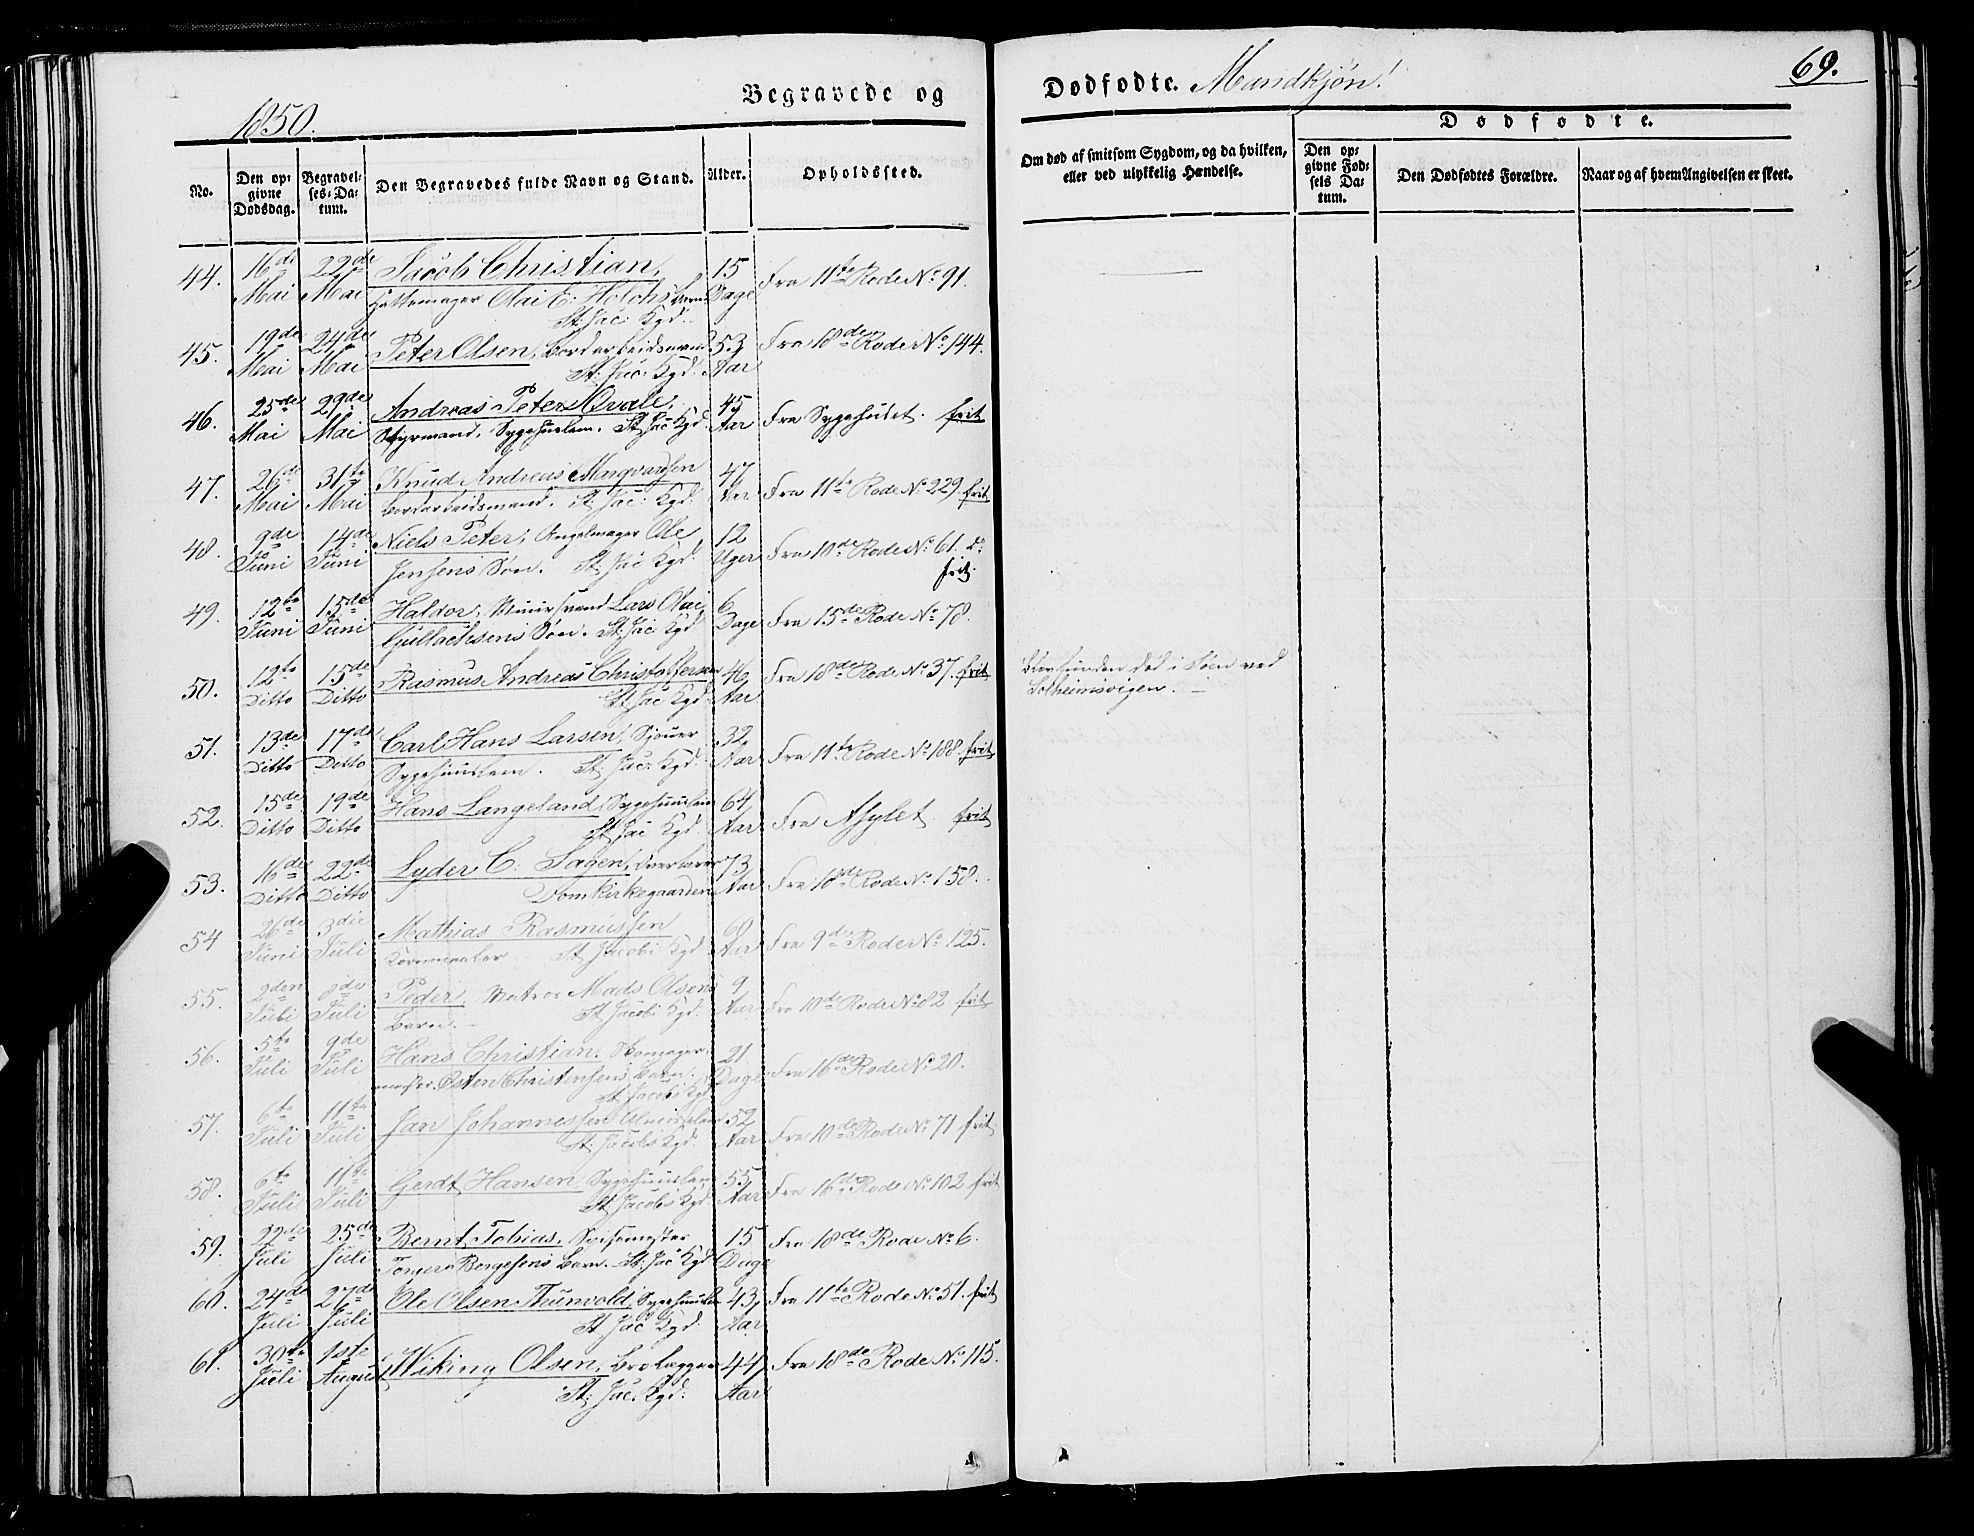 Begravede og Dødfødte. Mandkjøn!
69.
1850.
No.
Den opgivne Dødsdag.
Begravelses-Datum.
Den Begravedes fulde Navn og Stand.
Alder.
Opholdssted.
Om død af smitsom Sygdom, og da hvilken, eller ved ulykkelig Hændelse.
Dødfødte.
Den opgivne Fødsels Datum.
Den Dødfødtes Forældre.
Naar og af hvem Angivelsen er skeet.
44. 16de Mai 22de Mai Jacob Christian, 15 Dage Fra 11te Rode No. 91.
Hattemager Olai E. Holchs Barn
St. Jac: Kgd.
45. 19de Mai 24de Mai Peter Olsen, Bordarbeidsmand 53 Aar Fra 18de Rode No. 144.
St. Jac: Kgd.
46. 25de Mai 29de Mai Andreas Peter Qvale, 45 Aar Fra Sygehuset. frit
Styrmand, Sygehuslem. St. Jac Kgd.
47. 26de Mai 31te Mai Knud Andreas Mrqvardsen 47 Aar Fra 11te Rode No. 229 frit
Bordarbeidsmand. St. Jac: Kgd.
48. 9de Juni 14de Juni Niels Peter, Angelmager Ole 12 Uger Fra 10de Rode No. 61.
Jensens Søn. St. Jac Kgd. frit.
49. 12te Juni 15de Juni Haldor, Lars Olai 6 Dage Fra 15de Rode No. 78.
Gullachsens Søn. St. Jac: Kgd
50. 12te Ditto 15de Ditto Rasmus Andreas Christoffersen 46 Aar Fra 18de Rode No. 37. frit Blev funden død i Søen ved
St. Jac Kgd. Solheimsvigen. —
51. 13de Ditto 17de Ditto Carl Hans Larsen, Sjouer 32 Aar Fra 11te Rode No. 188 frit
Sygehuuslem. St. Jac: Kgd.
52. 15de Ditto 19de Ditto Hans Langeland, Sygehuuslem 64 Aar Fra Asylet. frit
St. Jac Kgd.
53. 16de Ditto 22de Ditto Lyder C. Sagen, Overlærer 73 Aar Fra 18de Rode No. 158.
Domkirkegaarden
54 26de Juni 3die Juli Mathias Rasmussen 60 Aar Fra 9de Rode No. 125.
Kornmaaler St. Jacobi Kgd.
55. 2den Juli 8de Juli Peder, Matros Mads Olsens 9 Aar Fra 10de Rode No. 82 frit
Barn. — St. Jacobi Kgd.
56. 5te Juli 9de Juli Hans Christian, Skomager- 21 Dage Fra 16de Rode No. 20.
mester Østen Christensens Barn.
St. Jacobi Kgd
57. 6te Juli 11te Juli Jan Johannessen 52 Aar Fra 10de Rode No. 71 frit.
St. Jacobs Kgd.
58. 6te Juli 11te Juli Gerdt Hansen, Sygehuuslem 55 Aar Fra 16de Rode No. 102 frit
St. Jacobs Kgd
59. 22de Juli 25de Juli Bernt Tobias, 15 Dage Fra 18de Rode No. 6.
Bergesens Barn. St. Jac Kgd
60. 24de Juli 27de Juli Ole Olsen 43 Aar Fra 11te Rode No. 51. frit
St. Jac Kgd.
61. 30te Juli 1ste August Wiking Olsen, Brolægger 44 Aar Fra 18de Rode No. 115.
St. Jac. Kgd.